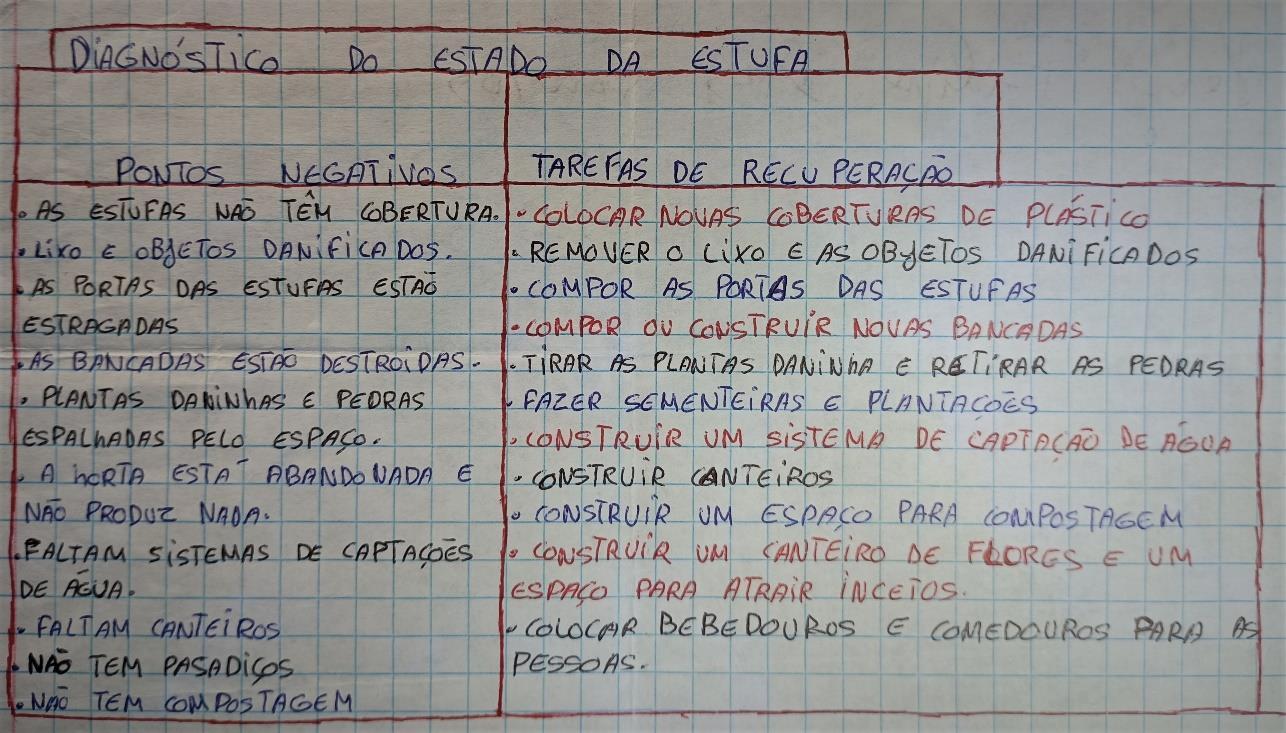 DIAGNÓSTICO DO ESTADO DA ESTUFA
PONTOS NEGATIVOS
• AS ESTUFAS NÃO TÊM COBERTURA.
• LIXO E OBJETOS DANIFICADOS.
• AS PORTAS DAS ESTUFAS ESTÃO
ESTRAGADAS
• AS BANCADAS ESTÃO DESTROIDAS.
• PLANTAS DANINHAS E PEDRAS
ESPALHADAS PELO ESPAÇO.
• A HORTA ESTÁ ABANDONADA E
NÃO PRODUZ NADA.
• FALTAM SISTEMAS DE CAPTAÇÕES
DE ÁGUA.
• FALTAM CANTEIROS
• NÃO TEM PASADIÇOS
• NÃO TEM COMPOSTAGEM
TAREFAS DE RECUPERAÇÃO
• COLOCAR NOVAS COBERTURAS DE PLÁSTICO
• REMOVER O LIXO E AS OBJETOS DANIFICADOS
• COMPOR AS PORTAS DAS ESTUFAS
• COMPOR OU CONSTRUIR NOVAS BANCADAS
• TIRAR AS PLANTAS DANINHA E RETIRAR AS PEDRAS
• FAZER SEMENTEIRAS E PLANTAÇÕES
• CONSTRUIR UM SISTEMA DE CAPTAÇÃO DE ÁGUA
• CONSTRUIR CANTEIROS
• CONSTRUIR UM ESPAÇO PARA COMPOSTAGEM
• CONSTRUIR UM CANTEIRO DE FLORES E UM
ESPAÇO PARA ATRAIR INCETOS.
• COLOCAR BEBEDOUROS E COMEDOUROS PARA AS
PESSOAS.